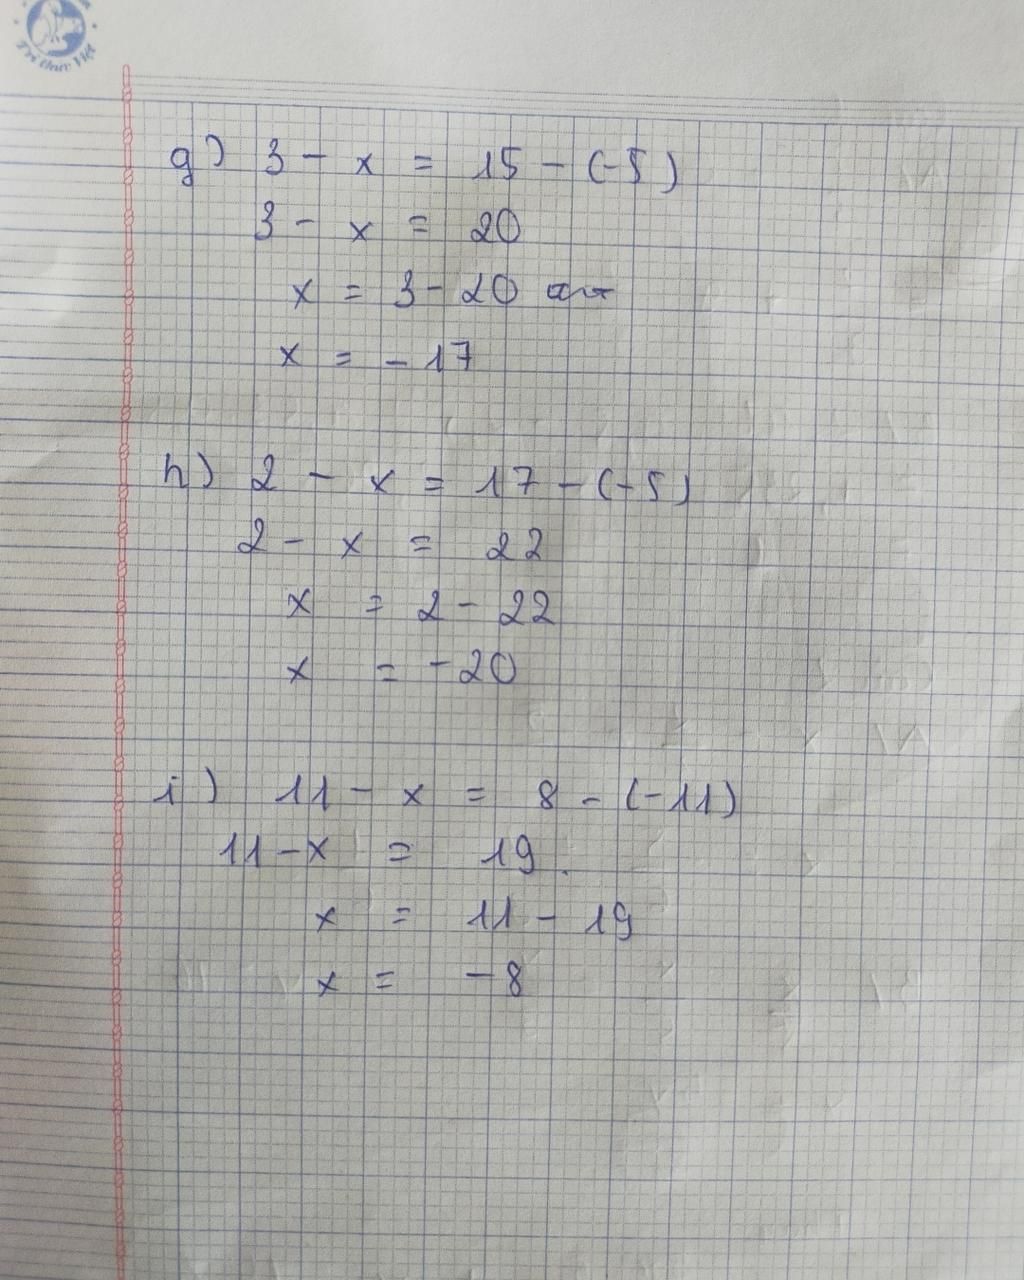 Trí Thức Việt
g) 3 - x = 15 - (-5)
3 - x = 20
x = 3 - 20
x = -17
h) 2 - x = 17 - (-5)
2 - x = 22
x = 2 - 22
x = -20
i) 11 - x = 8 - (-11)
11 - x = 19
x = 11 - 19
x = -8